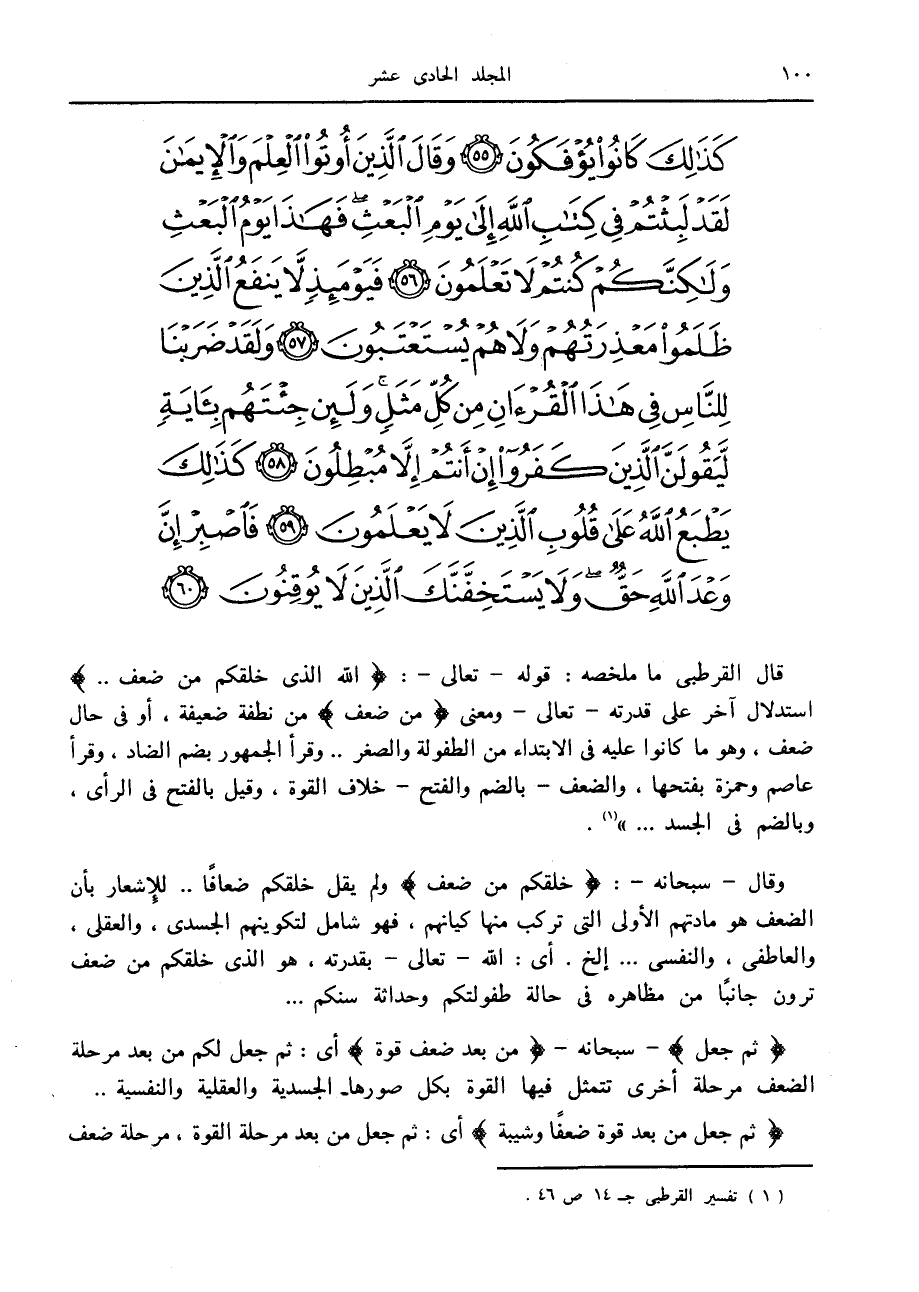 ١٠٠ المجلد الحادى عشر
كَذَٰلِكَ كَانُوا۟ يُؤْفَكُونَ ٥٥ وَقَالَ ٱلَّذِينَ أُوتُوا۟ ٱلْعِلْمَ وَٱلْإِيمَٰنَ
لَقَدْ لَبِثْتُمْ فِى كِتَٰبِ ٱللَّهِ إِلَىٰ يَوْمِ ٱلْبَعْثِ ۖ فَهَٰذَا يَوْمُ ٱلْبَعْثِ
وَلَٰكِنَّكُمْ كُنتُمْ لَا تَعْلَمُونَ ٥٦ فَيَوْمَئِذٍ لَّا يَنفَعُ ٱلَّذِينَ
ظَلَمُوا۟ مَعْذِرَتُهُمْ وَلَا هُمْ يُسْتَعْتَبُونَ ٥٧ وَلَقَدْ ضَرَبْنَا
لِلنَّاسِ فِى هَٰذَا ٱلْقُرْءَانِ مِن كُلِّ مَثَلٍ ۚ وَلَئِن جِئْتَهُم بِـَٔايَةٍ
لَّيَقُولَنَّ ٱلَّذِينَ كَفَرُوٓا۟ إِنْ أَنتُمْ إِلَّا مُبْطِلُونَ ٥٨ كَذَٰلِكَ
يَطْبَعُ ٱللَّهُ عَلَىٰ قُلُوبِ ٱلَّذِينَ لَا يَعْلَمُونَ ٥٩ فَٱصْبِرْ إِنَّ
وَعْدَ ٱللَّهِ حَقٌّ ۖ وَلَا يَسْتَخِفَّنَّكَ ٱلَّذِينَ لَا يُوقِنُونَ ٦٠
قال القرطبى ما ملخصه : قوله - تعالى - : ﴿ الله الذى خلقكم من ضعف .. ﴾
استدلال آخر على قدرته - تعالى - ومعنى ﴿ من ضعف ﴾ من نطفة ضعيفة ، أو فى حال
ضعف ، وهو ما كانوا عليه فى الابتداء من الطفولة والصغر .. وقرأ الجمهور بضم الضاد ، وقرأ
عاصم وحمزة بفتحها ، والضعف - بالضم والفتح - خلاف القوة ، وقيل بالفتح فى الرأى ،
وبالضم فى الجسد ... »(١) .
وقال - سبحانه - : ﴿ خلقكم من ضعف ﴾ ولم يقل خلقكم ضعافًا .. للإشعار بأن
الضعف هو مادتهم الأولى التى تركب منها كيانهم ، فهو شامل لتكوينهم الجسدى ، والعقلى ،
والعاطفى ، والنفسى ... إلخ . أى : الله - تعالى - بقدرته ، هو الذى خلقكم من ضعف
ترون جانبًا من مظاهره فى حالة طفولتكم وحداثة سنكم ...
﴿ ثم جعل ﴾ - سبحانه - ﴿ من بعد ضعف قوة ﴾ أى : ثم جعل لكم من بعد مرحلة
الضعف مرحلة أخرى تتمثل فيها القوة بكل صورها الجسدية والعقلية والنفسية ..
﴿ ثم جعل من بعد قوة ضعفًا وشيبة ﴾ أى : ثم جعل من بعد مرحلة القوة ، مرحلة ضعف
( ١ ) تفسير القرطبى جـ ١٤ ص ٤٦ .